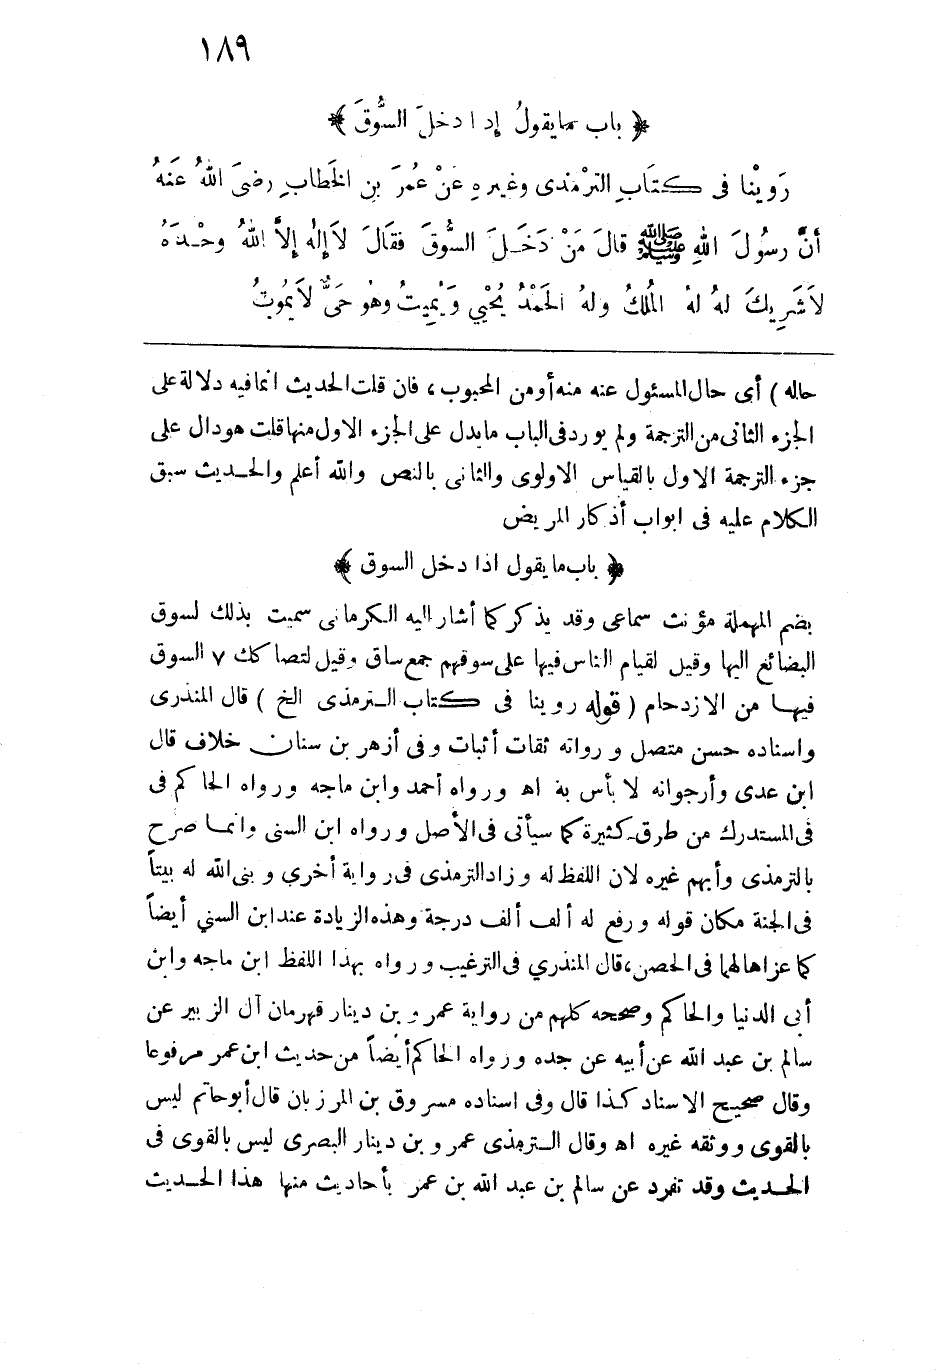 ١٨٩
﴿ باب مايقولُ إذا دخلَ السُّوقَ ﴾
رَوَيْنا فى كتَابِ الترْمذى وغيرهِ عَنْ عُمرَ بنِ الخَطابِ رضىَ اللهُ عَنهُ
أنَّ رسُولَ اللهِ ﷺ قالَ مَنْ دَخَلَ السُّوقَ فقَالَ لاَإلٰه إلاَّ اللهُ وحْدَهُ
لاَشَرِيكَ لهُ لهُ المُلكُ ولهُ الحَمْدُ يُحْيِي وَيُمِيتُ وهُو حَىٌّ لاَيمُوتُ
حاله ) أى حال المسئول عنه منه أومن المحبوب ، فان قلت الحديث انمافيه دلالة على
الجزء الثانى من الترجمة ولم يوردفى الباب مايدل على الجزء الاول منها قلت هودال على
جزء الترجمة الاول بالقياس الاولوى والثانى بالنص والله أعلم والحديث سبق
الكلام عليه فى ابواب أذكار المريض
﴿ باب مايقول اذا دخل السوق ﴾
بضم المهملة مؤنث سماعى وقد يذكر كما أشار اليه الكرمانى سميت بذلك لسوق
البضائع اليها وقيل لقيام الناس فيها على سوقهم جمع ساق وقيل لتصاكك ٧ السوق
فيها من الازدحام ( قوله روينا فى كتاب الترمذى الخ ) قال المنذرى
واسناده حسن متصل ورواته ثقات أثبات وفى أزهر بن سنان خلاف قال
ابن عدى وأرجوانه لا بأس به اه ورواه أحمد وابن ماجه ورواه الحاكم فى
فى المستدرك من طرق كثيرة كما سيأتى فى الأصل ورواه ابن السنى وانما صرح
بالترمذى وأبهم غيره لان اللفظ له وزاد الترمذى فى رواية أخري وبنى الله له بيتاً
فى الجنة مكان قوله ورفع له ألف ألف درجة وهذه الزيادة عندابن السني أيضاً
كما عزاهالهما فى الحصن، قال المنذري فى الترغيب ورواه بهذا اللفظ ابن ماجه وابن
أبى الدنيا والحاكم وصححه كلهم من رواية عمرو بن دينار قهرمان آل الزبير عن
سالم بن عبد الله عن أبيه عن جده ورواه الحاكم أيضاً من حديث ابن عمر مرفوعا
وقال صحيح الاسناد كذا قال وفى اسناده مسروق بن المرزبان قال أبوحاتم ليس
بالقوى ووثقه غيره اه وقال الترمذى عمرو بن دينار البصرى ليس بالقوى فى
الحديث وقد تفرد عن سالم بن عبد الله بن عمر بأحاديث منها هذا الحديث